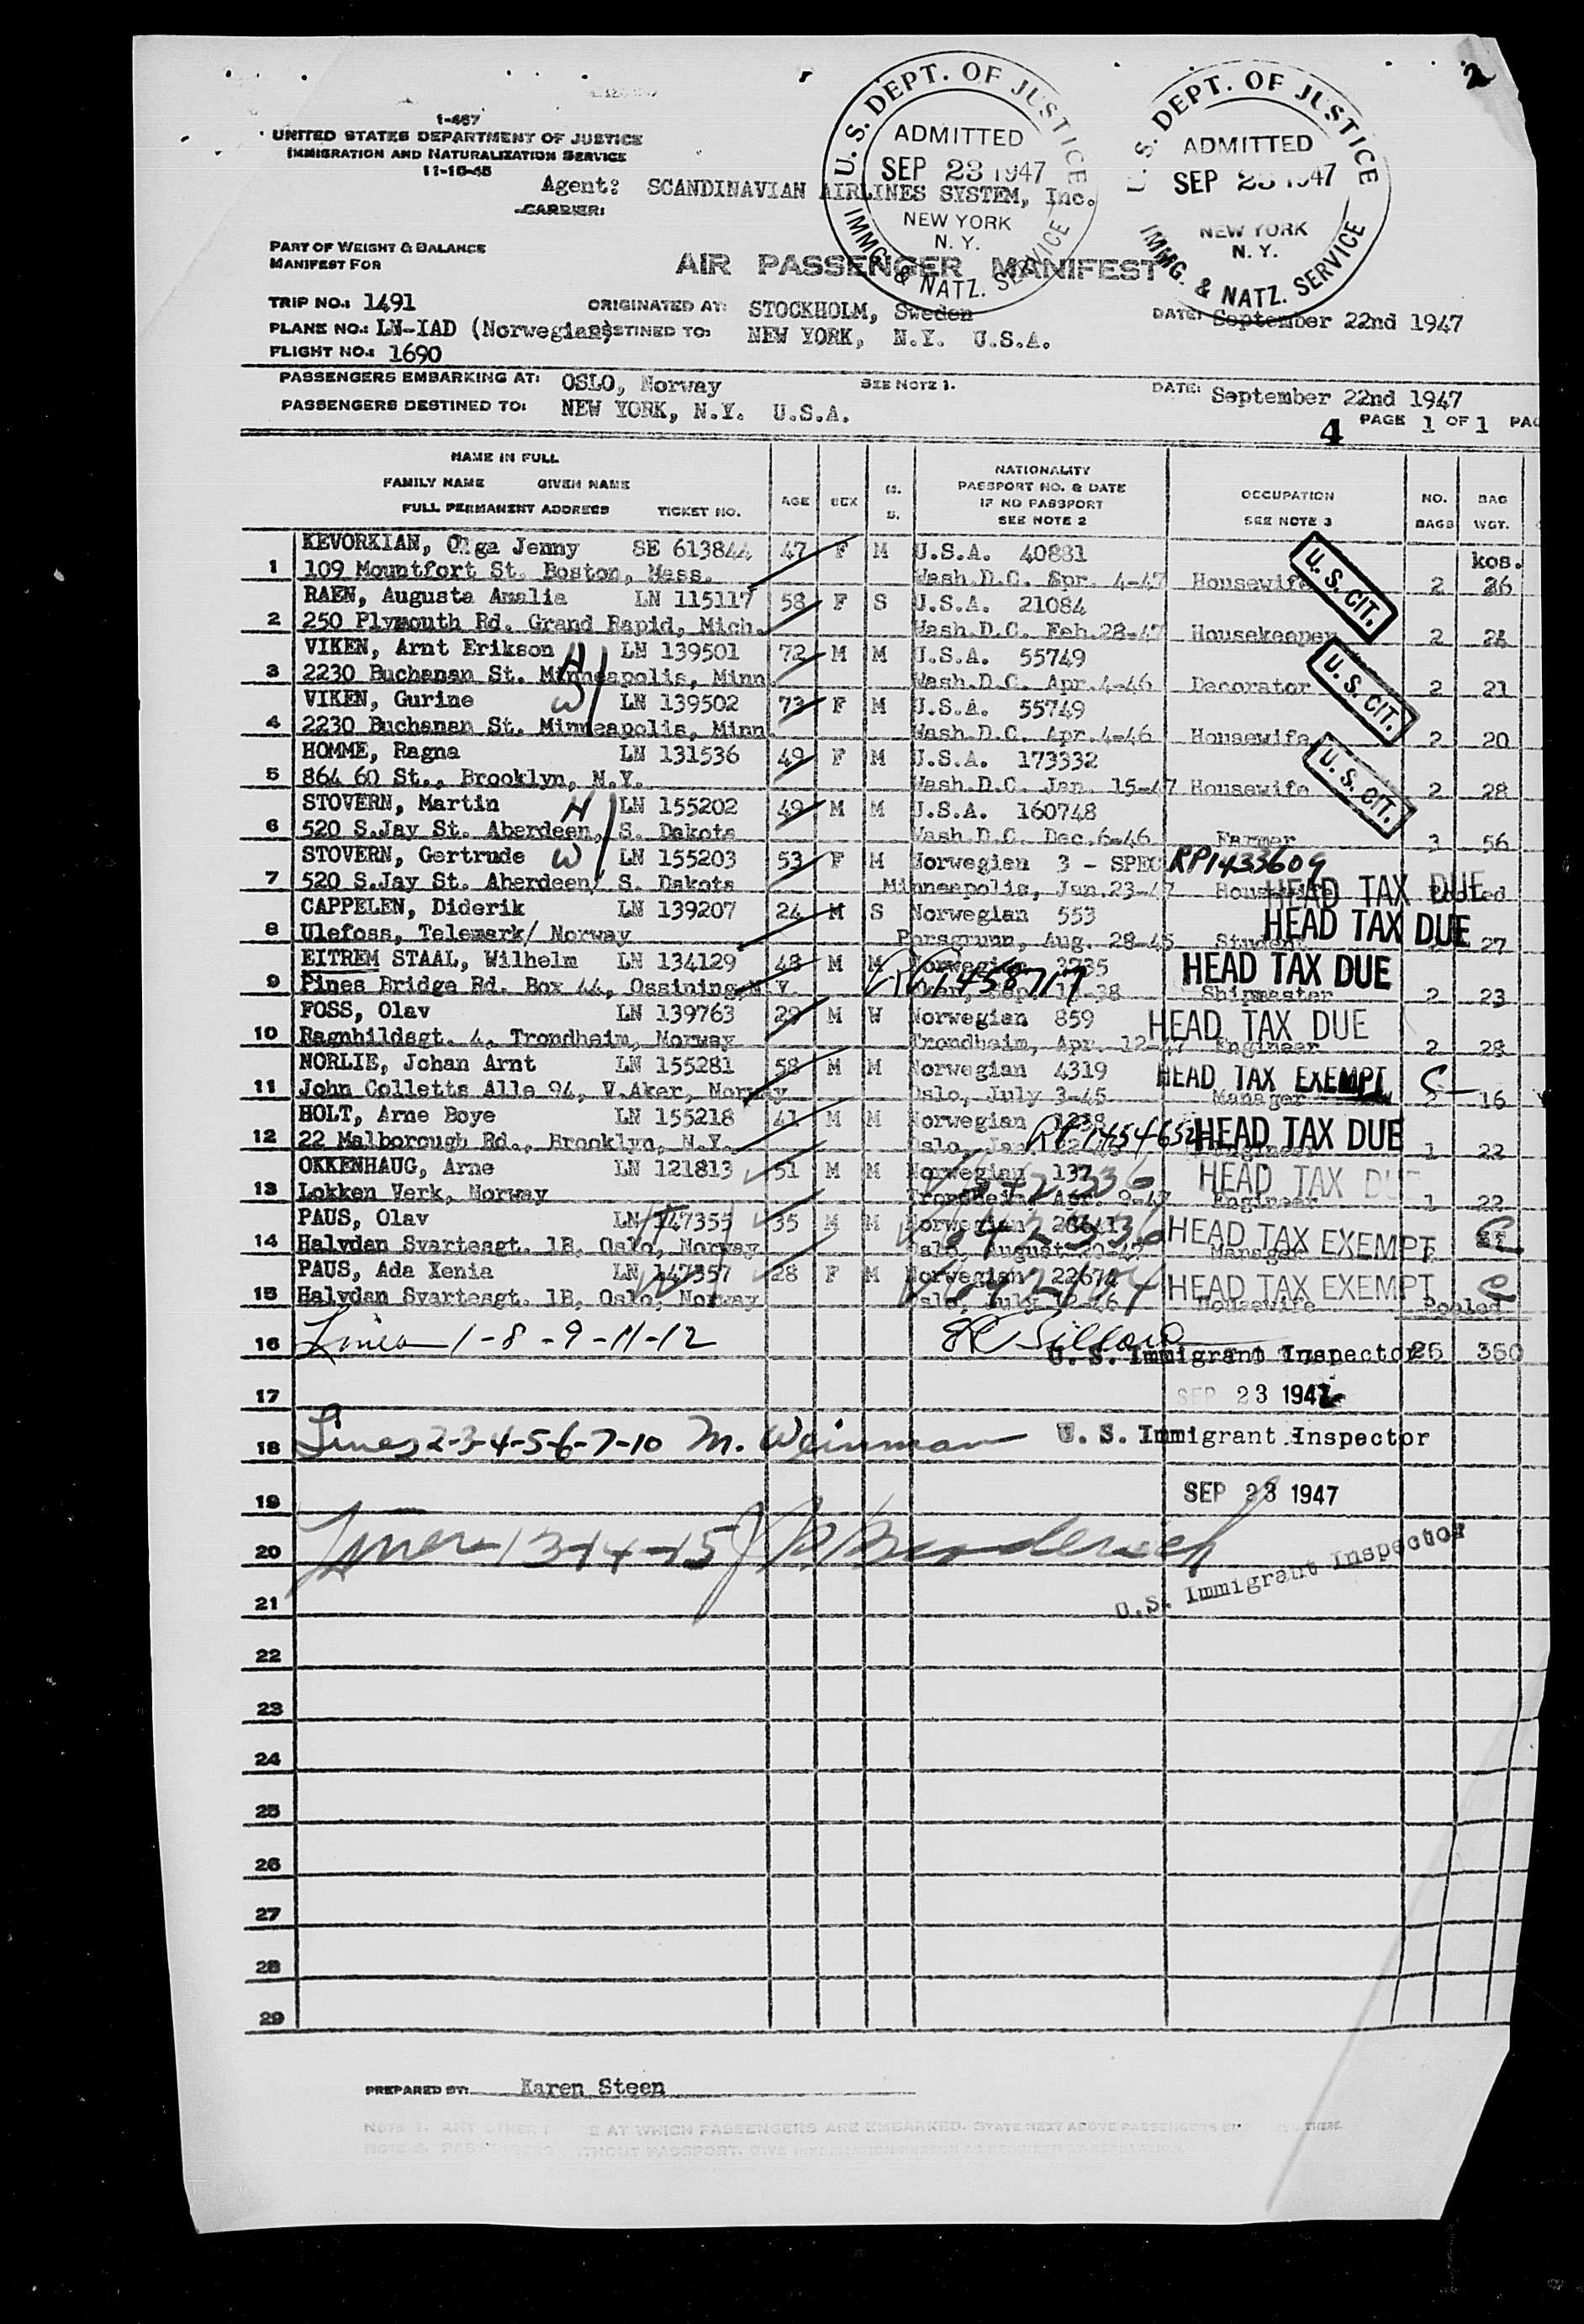 2
I-467
UNITED STATES DEPARTMENT OF JUSTICE
IMMIGRATION AND NATURALIZATION SERVICE
11-10-45
Agent: SCANDINAVIAN AIRLINES SYSTEM, Inc.
CARRIER:
U. S. DEPT. OF JUSTICE
ADMITTED
SEP 23 1947
NEW YORK
N. Y.
IMMG. & NATZ. SERVICE
U. S. DEPT. OF JUSTICE
ADMITTED
SEP 23 1947
NEW YORK
N. Y.
IMMG. & NATZ. SERVICE
PART OF WEIGHT & BALANCE
MANIFEST FOR
AIR PASSENGER MANIFEST
TRIP NO.: 1491 ORIGINATED AT: STOCKHOLM, Sweden DATE: September 22nd 1947
PLANE NO.: LN-IAD (Norwegian) DESTINED TO: NEW YORK, N.Y. U.S.A.
FLIGHT NO.: 1690
PASSENGERS EMBARKING AT: OSLO, Norway SEE NOTE 1. DATE: September 22nd 1947
PASSENGERS DESTINED TO: NEW YORK, N.Y. U.S.A.
4 PAGE 1 OF 1
NAME IN FULL
FAMILY NAME GIVEN NAME
FULL PERMANENT ADDRESS TICKET NO. AGE SEX M. S. NATIONALITY PASSPORT NO. & DATE IF NO PASSPORT SEE NOTE 2 OCCUPATION SEE NOTE 3 NO. BAGS BAG WGT.
KEVORKIAN, Olga Jenny SE 613844 47 F M U.S.A. 40881 kos.
1 109 Mountfort St. Boston, Mass. Wash.D.C. Apr. 4-47 Housewife 2 26
U. S. CIT.
RAEN, Augusta Amalia LN 115117 58 F S U.S.A. 21084
2 250 Plymouth Rd. Grand Rapid, Mich. Wash.D.C. Feb.28-47 Housekeeper 2 24
VIKEN, Arnt Erikson H LN 139501 72 M M U.S.A. 55749
3 2230 Buchanan St. Minneapolis, Minn. Wash.D.C. Apr.4-46 Decorator 2 21
U. S. CIT.
VIKEN, Gurine W LN 139502 73 F M U.S.A. 55749
4 2230 Buchanan St. Minneapolis, Minn. Wash.D.C. Apr.4-46 Housewife 2 20
HOMME, Ragna LN 131536 49 F M U.S.A. 173332
5 864 60 St., Brooklyn, N.Y. Wash.D.C. Jan. 15-47 Housewife 2 28
U. S. CIT.
STOVERN, Martin H LN 155202 49 M M U.S.A. 160748
6 520 S.Jay St. Aberdeen, S. Dakota Wash.D.C. Dec.6-46 Farmer 3 56
STOVERN, Gertrude W LN 155203 53 F M Norwegian 3 - SPEC RP1433609
7 520 S.Jay St. Aberdeen/ S. Dakota Minneapolis, Jan.23-47 Housewife Pooled
HEAD TAX DUE
CAPPELEN, Diderik LN 139207 24 M S Norwegian 553
8 Ulefoss, Telemark/ Norway Porsgrunn, Aug. 28-45 Student 27
HEAD TAX DUE
EITREM STAAL, Wilhelm LN 134129 48 M M Norwegian 3735
9 Pines Bridge Rd. Box 44, Ossining, N.Y. Shipmaster 2 23
HEAD TAX DUE
FOSS, Olav LN 139763 29 M W Norwegian 859
10 Ragnhildsgt. 4, Trondheim, Norway Trondheim, Apr. 12-47 Engineer 2 28
HEAD TAX DUE
NORLIE, Johan Arnt LN 155281 58 M M Norwegian 4319
11 John Colletts Alle 94, V.Aker, Norway Oslo, July 3-45 Manager 2 16
HEAD TAX EXEMPT C
HOLT, Arne Boye LN 155218 41 M M Norwegian 1238
12 22 Malborough Rd., Brooklyn, N.Y. Oslo, Jan Engineer 1 22
HEAD TAX DUE
OKKENHAUG, Arne LN 121813 51 M M Norwegian 137
13 Lokken Verk, Norway Trondheim, Apr. 9-47 Engineer 1 22
HEAD TAX DUE
PAUS, Olav LN 147355 35 M M Norwegian
14 Halvdan Svartesgt. 1B, Oslo, Norway Oslo, August 20-47 Manager
HEAD TAX EXEMPT C
PAUS, Ada Xenia LN 147357 28 F M Norwegian
15 Halvdan Svartesgt. 1B, Oslo, Norway Oslo, July Housewife Pooled
HEAD TAX EXEMPT C
16 Lines 1-8-9-11-12 U. S. Immigrant Inspector 26 360
17 SEP 23 1947
18 Lines 2-3-4-5-6-7-10 M. Weinman U. S. Immigrant Inspector
19 SEP 23 1947
20 Lines 13-14-15
U.S. Immigrant Inspector
21
22
23
24
25
26
27
28
29
PREPARED BY: Karen Steen